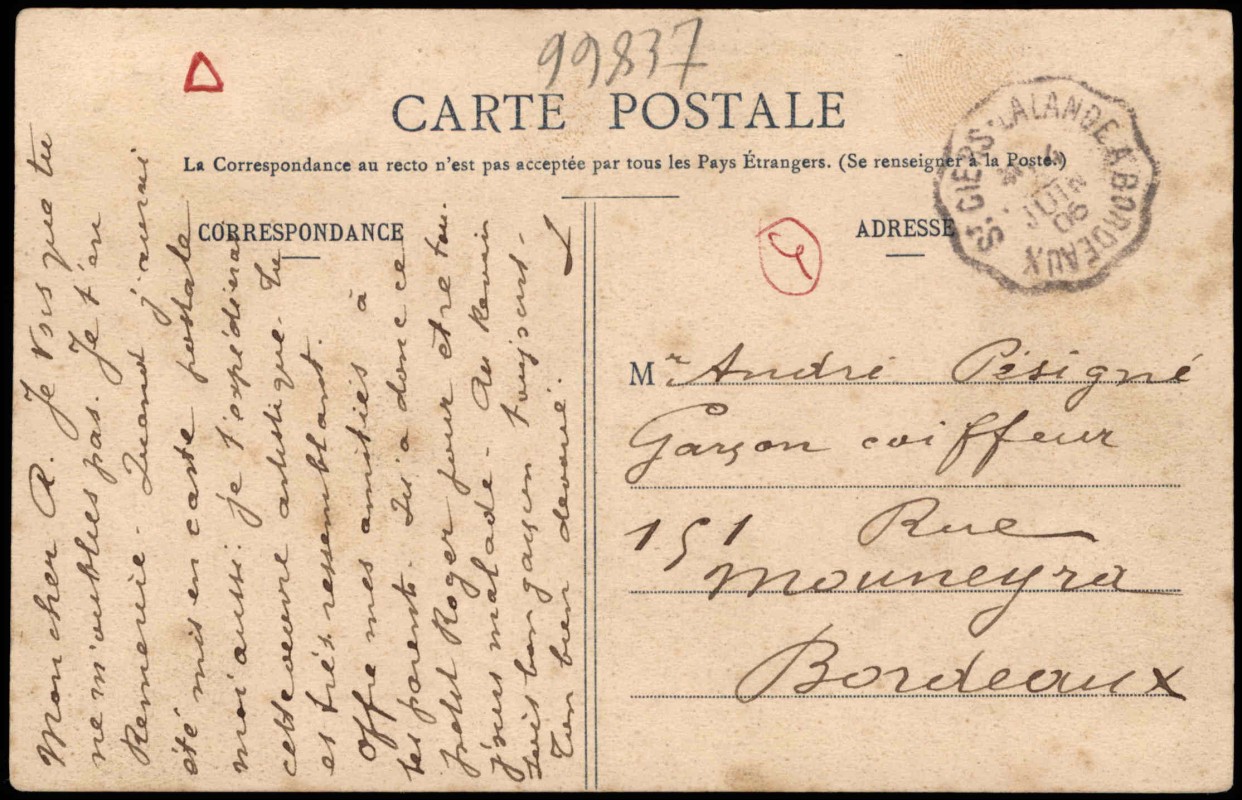 99837
CARTE POSTALE
La Correspondance au recto n'est pas acceptée par tous les Pays Étrangers. (Se renseigner à la Poste.)
CORRESPONDANCE
Mon cher A. Je vois que tu
ne m'oublies pas. Je t'en
Remercie. Quand j'aurai
été mis en carte postale
moi aussi je t'expédierai
cette oeuvre artistique. Tu
es très ressemblant.
Offre mes amitiés à
tes parents. Qu'a donc ce
petit Roger pour être
malade. Au revoir
Sois bon garçon toujours.
Ton bien dévoué.
ADRESSE
ST CIERS-LALANDE A BORDEAUX
4
JUIN
06
Mr André Pésigné
Garçon coiffeur
151 Rue
Mouneyra
Bordeaux